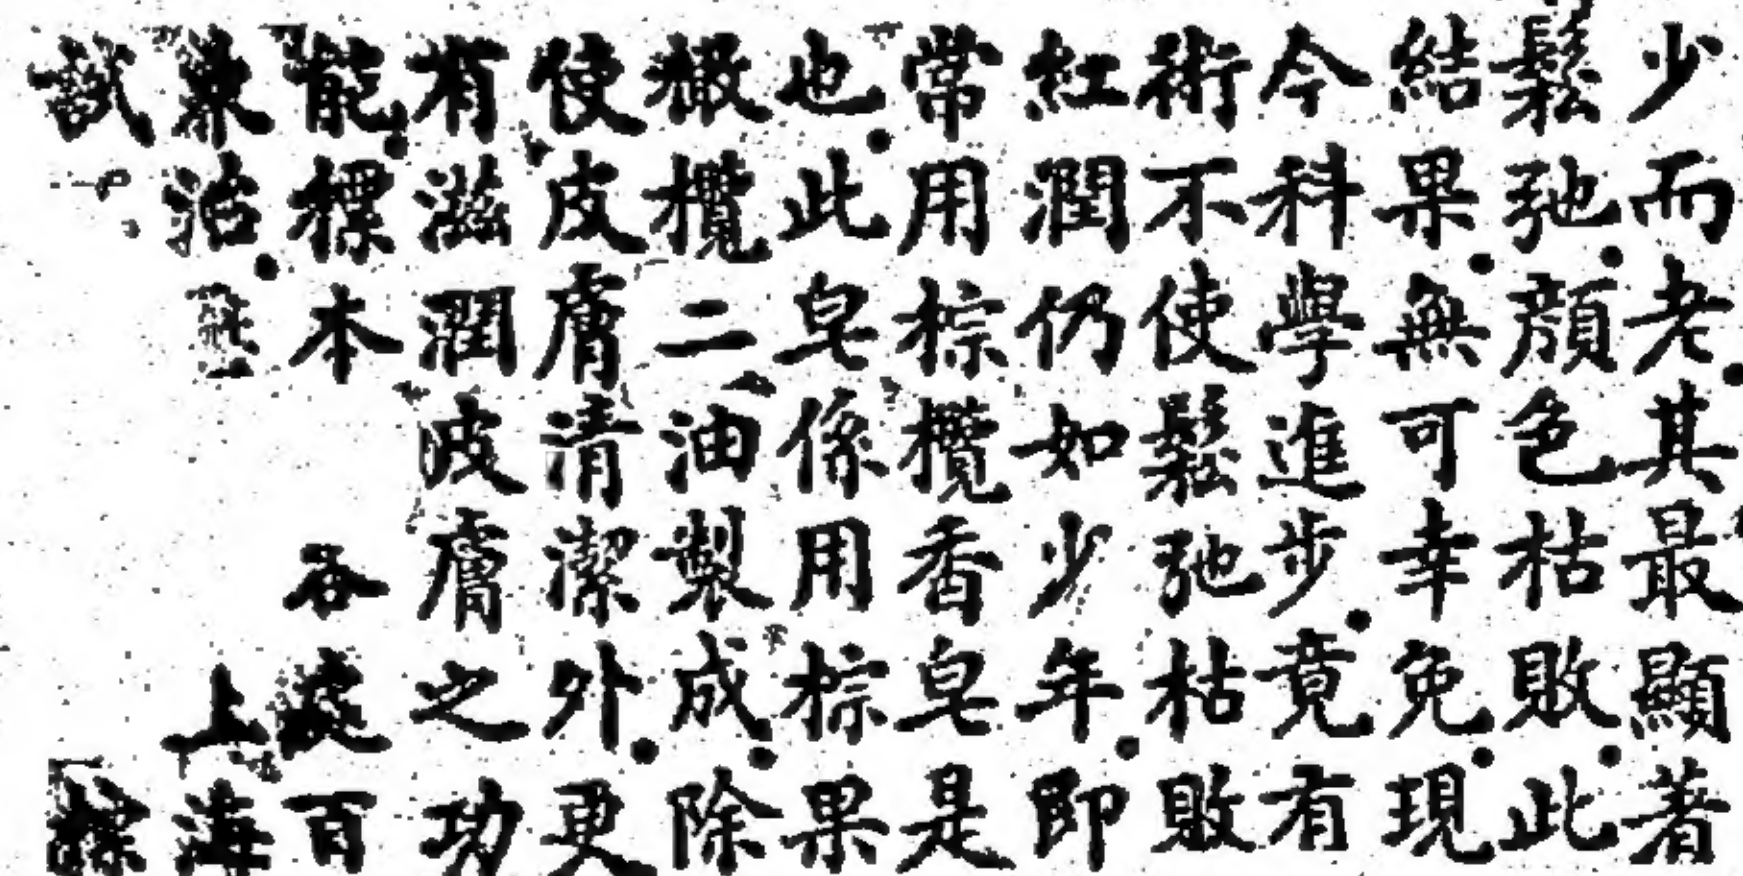 少而老其最顯著
鬆弛顔色枯敗此
結果無可幸免現
今科學進步竟有
術不使鬆弛枯敗
紅潤仍如少年即
常用棕欖香皂是
也此皂係用棕果
橄欖二油製成除
使皮膚清潔外更
有滋潤皮膚之功
能標本 各處百
治 上海
試 標